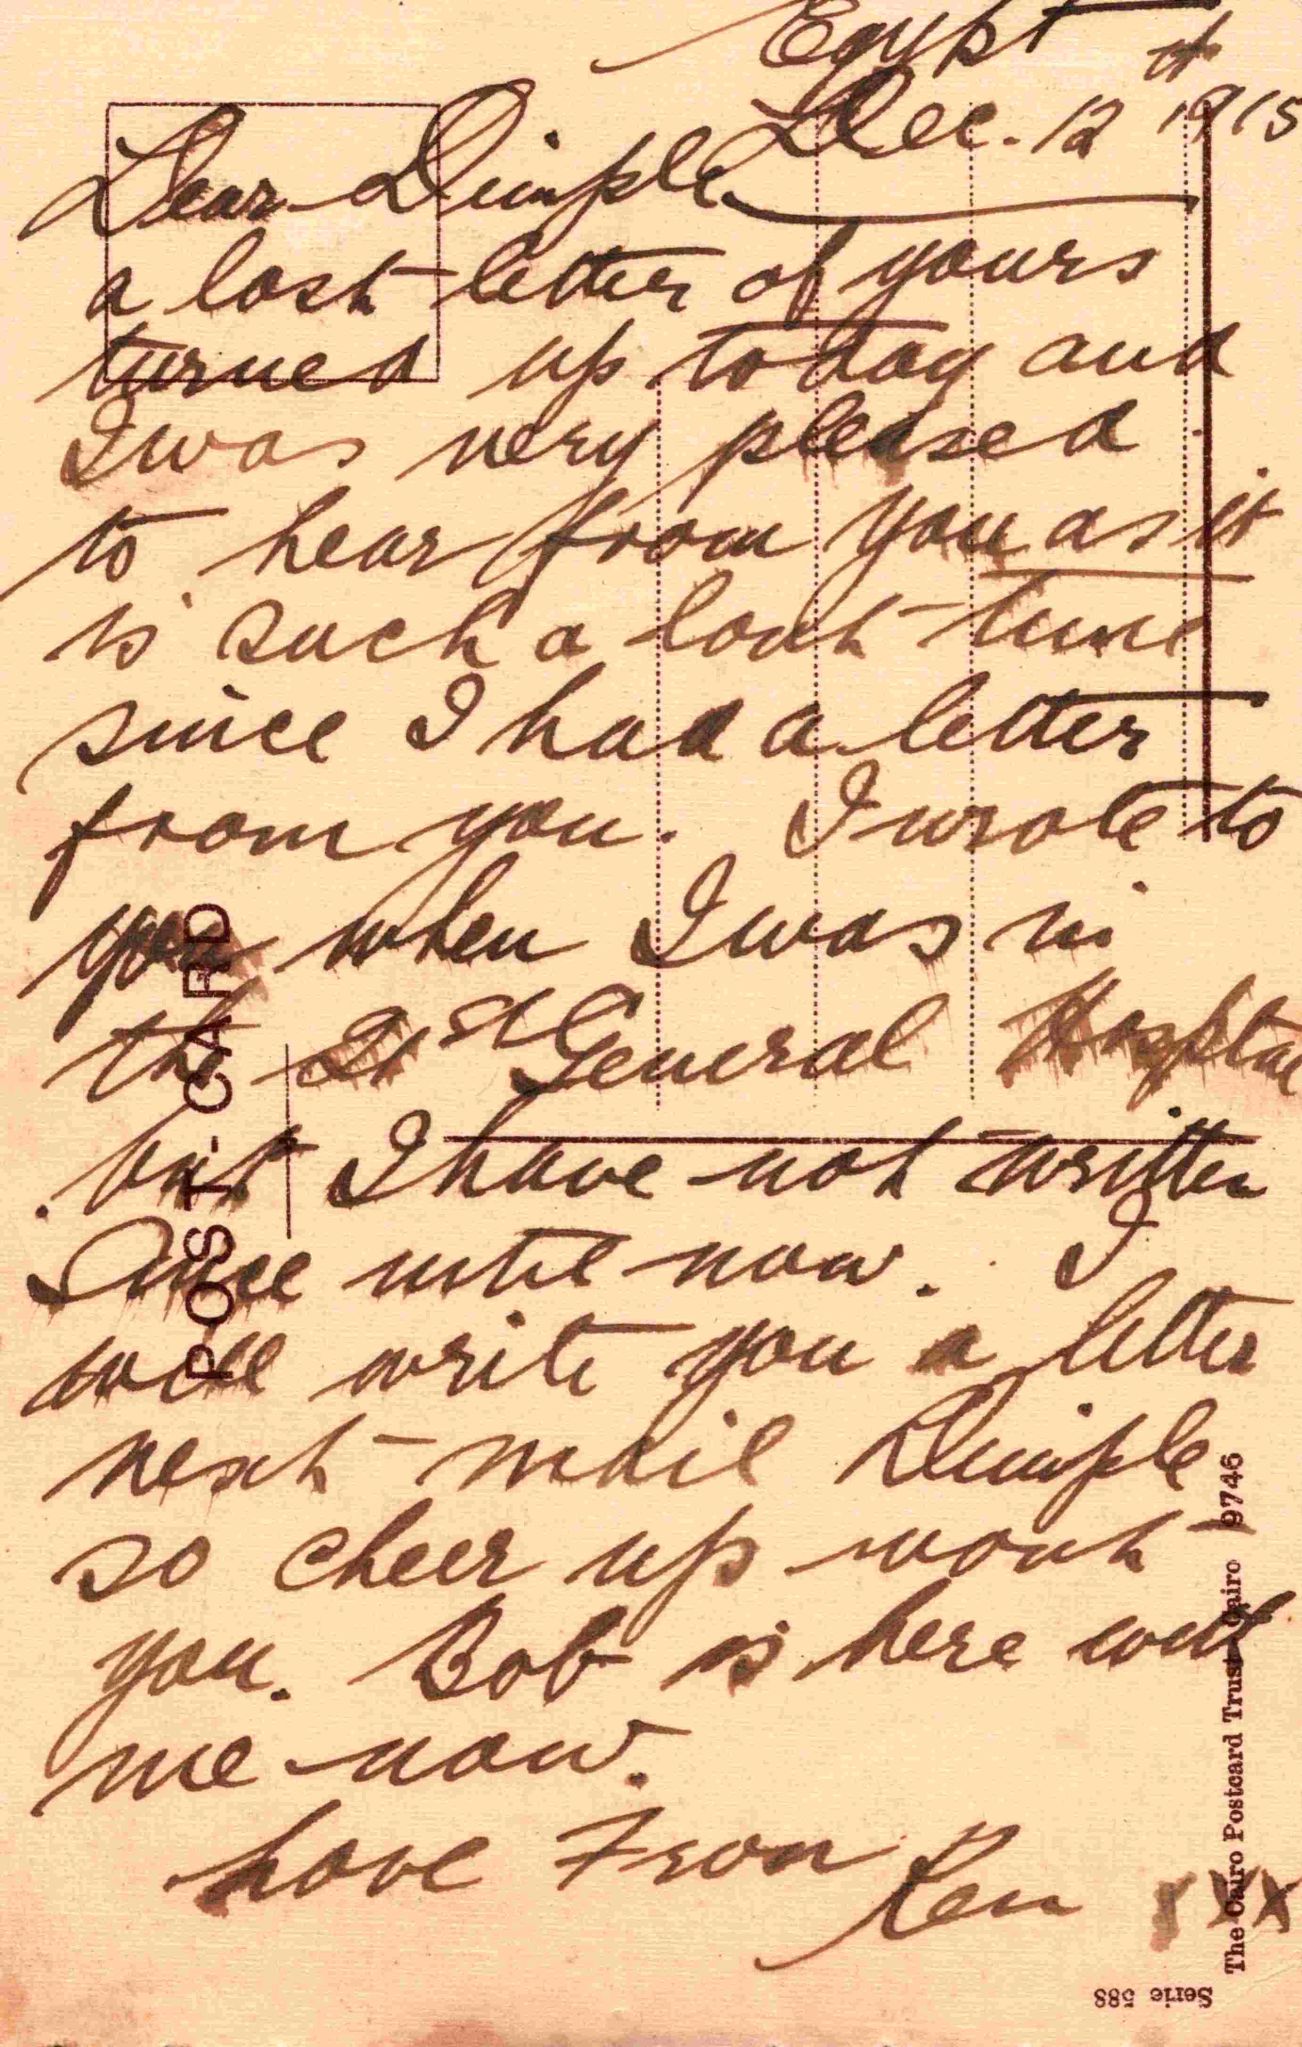 Egypt
Dec. 12th 1915
Dear Dimple
a lost letter of yours
turned up today and
I was very pleased
to hear from you as it
is such a long time
since I had a letter
from you. I wrote to
you when I was in
the 21st General Hospital
but I have not written
Since until now. I
will write you a letter
next mail Dimple
so cheer up wont
you. Bob is here with
me now.
Love From
Ken xxx
POST. CARD
The Cairo Postcard Trust Cairo 9746
Serie 588